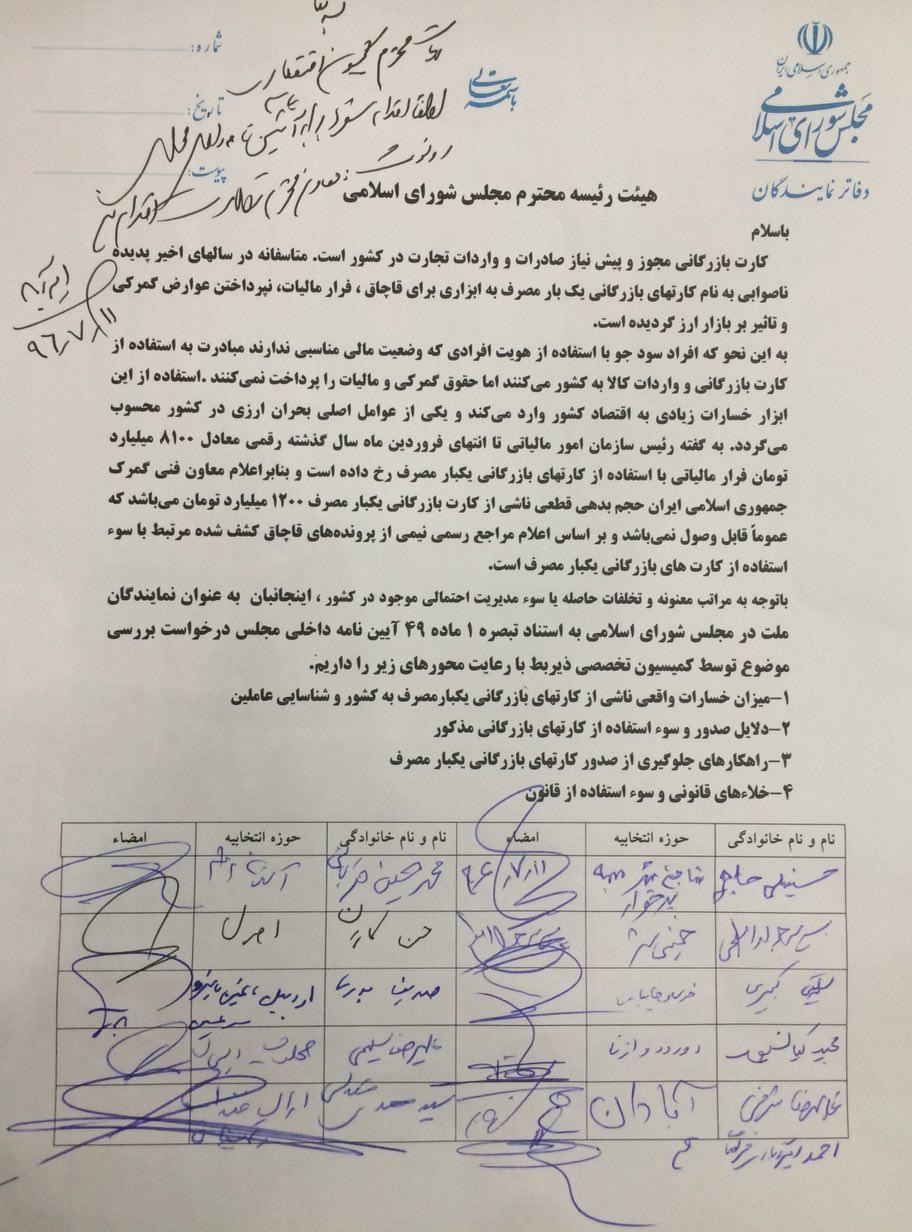 جمهوری اسلامی ایران
مجلس شورای اسلامی
دفاتر نمایندگان
باسمه تعالی
شماره:
تاریخ:
پیوست:
محترم کمیسیون
لطفا اقدام شود
رونوشت: معاون محترم نظارت
۹۶/۷/۱۱
هیئت رئیسه محترم مجلس شورای اسلامی
باسلام
کارت بازرگانی مجوز و پیش نیاز صادرات و واردات تجارت در کشور است. متاسفانه در سالهای اخیر پدیده
ناصوابی به نام کارتهای بازرگانی یک بار مصرف به ابزاری برای قاچاق ، فرار مالیات، نپرداختن عوارض گمرکی
و تاثیر بر بازار ارز گردیده است.
به این نحو که افراد سود جو با استفاده از هویت افرادی که وضعیت مالی مناسبی ندارند مبادرت به استفاده از
کارت بازرگانی و واردات کالا به کشور می‌کنند اما حقوق گمرکی و مالیات را پرداخت نمی‌کنند .استفاده از این
ابزار خسارات زیادی به اقتصاد کشور وارد می‌کند و یکی از عوامل اصلی بحران ارزی در کشور محسوب
می‌گردد. به گفته رئیس سازمان امور مالیاتی تا انتهای فروردین ماه سال گذشته رقمی معادل ۸۱۰۰ میلیارد
تومان فرار مالیاتی با استفاده از کارتهای بازرگانی یکبار مصرف رخ داده است و بنابراعلام معاون فنی گمرک
جمهوری اسلامی ایران حجم بدهی قطعی ناشی از کارت بازرگانی یکبار مصرف ۱۲۰۰ میلیارد تومان می‌باشد که
عموماً قابل وصول نمی‌باشد و بر اساس اعلام مراجع رسمی نیمی از پرونده‌های قاچاق کشف شده مرتبط با سوء
استفاده از کارت های بازرگانی یکبار مصرف است.
باتوجه به مراتب معنونه و تخلفات حاصله یا سوء مدیریت احتمالی موجود در کشور ، اینجانبان به عنوان نمایندگان
ملت در مجلس شورای اسلامی به استناد تبصره ۱ ماده ۴۹ آیین نامه داخلی مجلس درخواست بررسی
موضوع توسط کمیسیون تخصصی ذیربط با رعایت محورهای زیر را داریم.
۱-میزان خسارات واقعی ناشی از کارتهای بازرگانی یکبارمصرف به کشور و شناسایی عاملین
۲-دلایل صدور و سوء استفاده از کارتهای بازرگانی مذکور
۳-راهکارهای جلوگیری از صدور کارتهای بازرگانی یکبار مصرف
۴-خلاءهای قانونی و سوء استفاده از قانون
نام و نام خانوادگی حوزه انتخابیه امضاء نام و نام خانوادگی حوزه انتخابیه امضاء
حسینعلی حاجی شاهین شهر میمه برخوار ۹۶/۷/۱۱ محمدحسین قربانی آستانه اشرفیه
خمینی شهر حسن کامران اصفهان
صدیف بدری اردبیل
مجید کیانپور دورود و ازنا علیرضا سلیمی محلات
غلامرضا شرفی آبادان سید مهدی
احمد